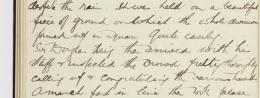 despite the rain. It was held on a beautiful
piece of ground on which the whole division
formed up in Square quite easily.
Sir Douglas Haig the arrived with his
staff & inspected the Crowd pretty thoroughly
calling up & congratulating the various heads
A march past in line the